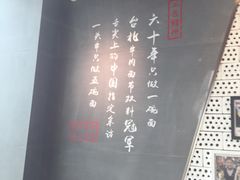 六十年只做一碗面
台北牛肉面节双料冠军
舌尖上的中国指定采访
一头牛只做五碗面